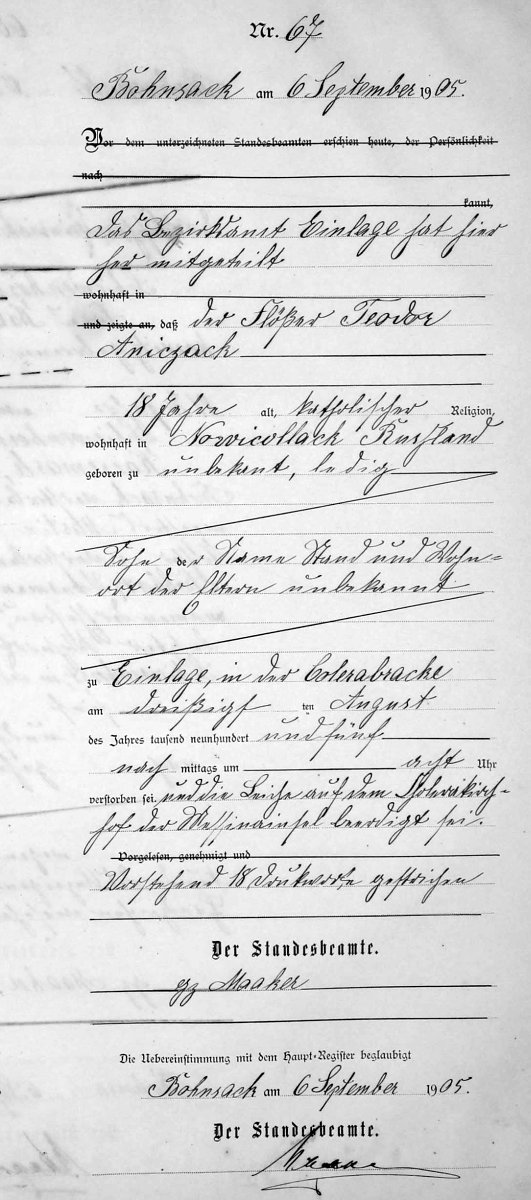 Nr. 67
Bohnsack am 6 September 1905.
Vor dem unterzeichneten Standesbeamten erschien heute, der Persönlichkeit
nach
kannt,
Das Bezirksamt Einlage hat hier
her mitgeteilt
wohnhaft in
und zeigte an, daß der Flößer Teodor
Aniczack
18 Jahre alt, katholischer Religion,
wohnhaft in Nowicollack Rußland
geboren zu unbekant, ledig
Sohn der Name Stand und Wohn=
ort der Eltern unbekannt
zu Einlage, in der Colerabracke
am dreißigs ten August
des Jahres tausend neunhundert und fünf
nach mittags um acht Uhr
verstorben sei und die Leiche auf dem Cholerakirch-
hof der Messinainsel beerdigt sei.
Vorgelesen, genehmigt und
Vorstehend 18 Drukworte gestrichen
Der Standesbeamte.
gz Maaker
Die Uebereinstimmung mit dem Haupt-Register beglaubigt
Bohnsack am 6 September 1905.
Der Standesbeamte.